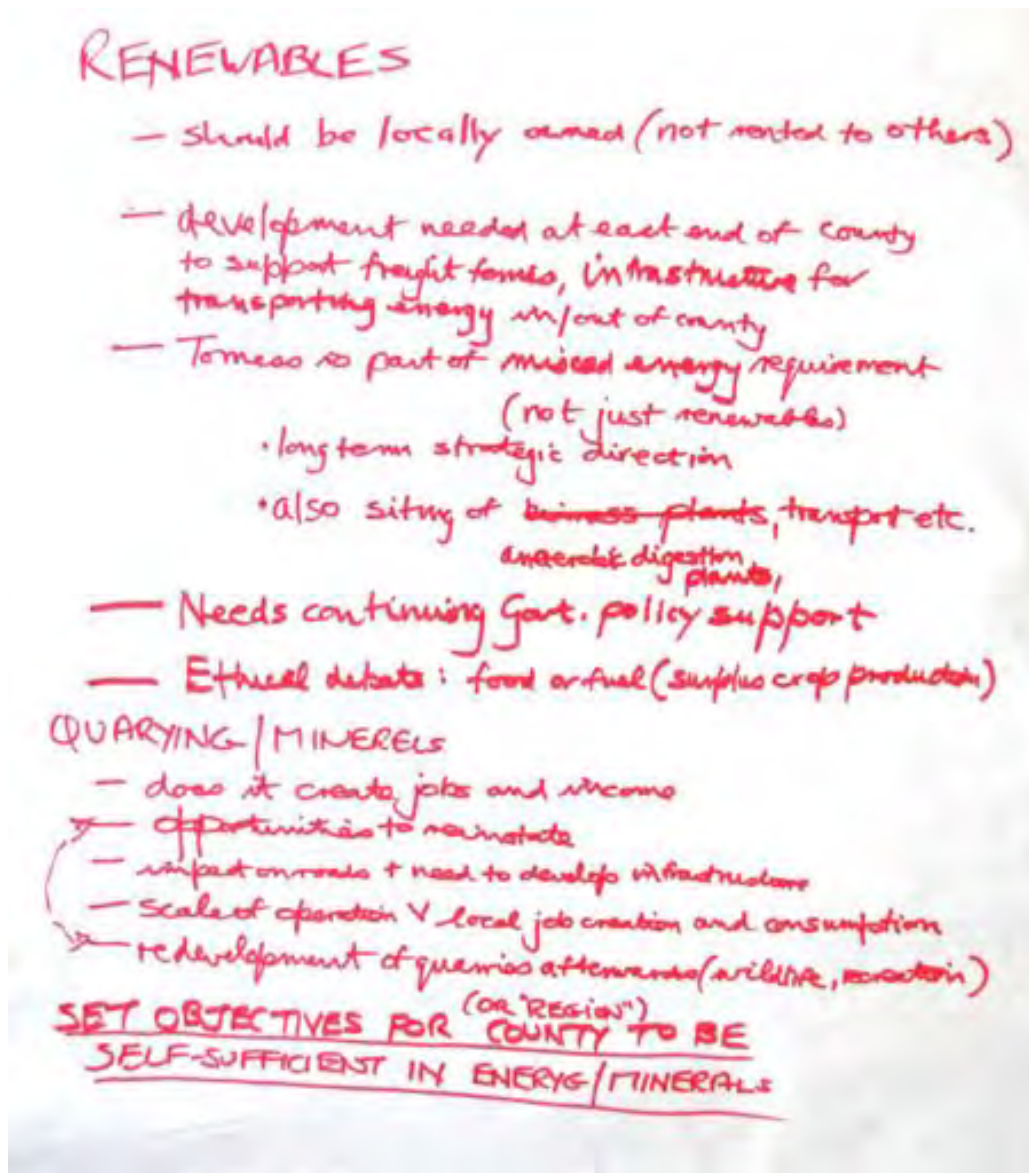 RENEWABLES
— should be locally owned (not rented to others)
— development needed at east end of county
to support freight , infrastructure for
transporting energy in/out of county
— Torness is part of mixed energy requirement
(not just renewables)
· long term strategic direction
· also siting of biomass plants, transport etc.
anaerobic digestion
plants,
— Needs continuing Govt. policy support
— Ethical debate : food or fuel (surplus crop production)
QUARYING / MINERELS
— does it create jobs and income
— opportunities to reinstate
— impact on roads + need to develop infrastructure
— scale of operation V local job creation and consumption
— redevelopment of quarries afterwards (wildlife, recreation)
(OR "REGION")
SET OBJECTIVES FOR COUNTY TO BE
SELF-SUFFICIENT IN ENERYG / MINERALS